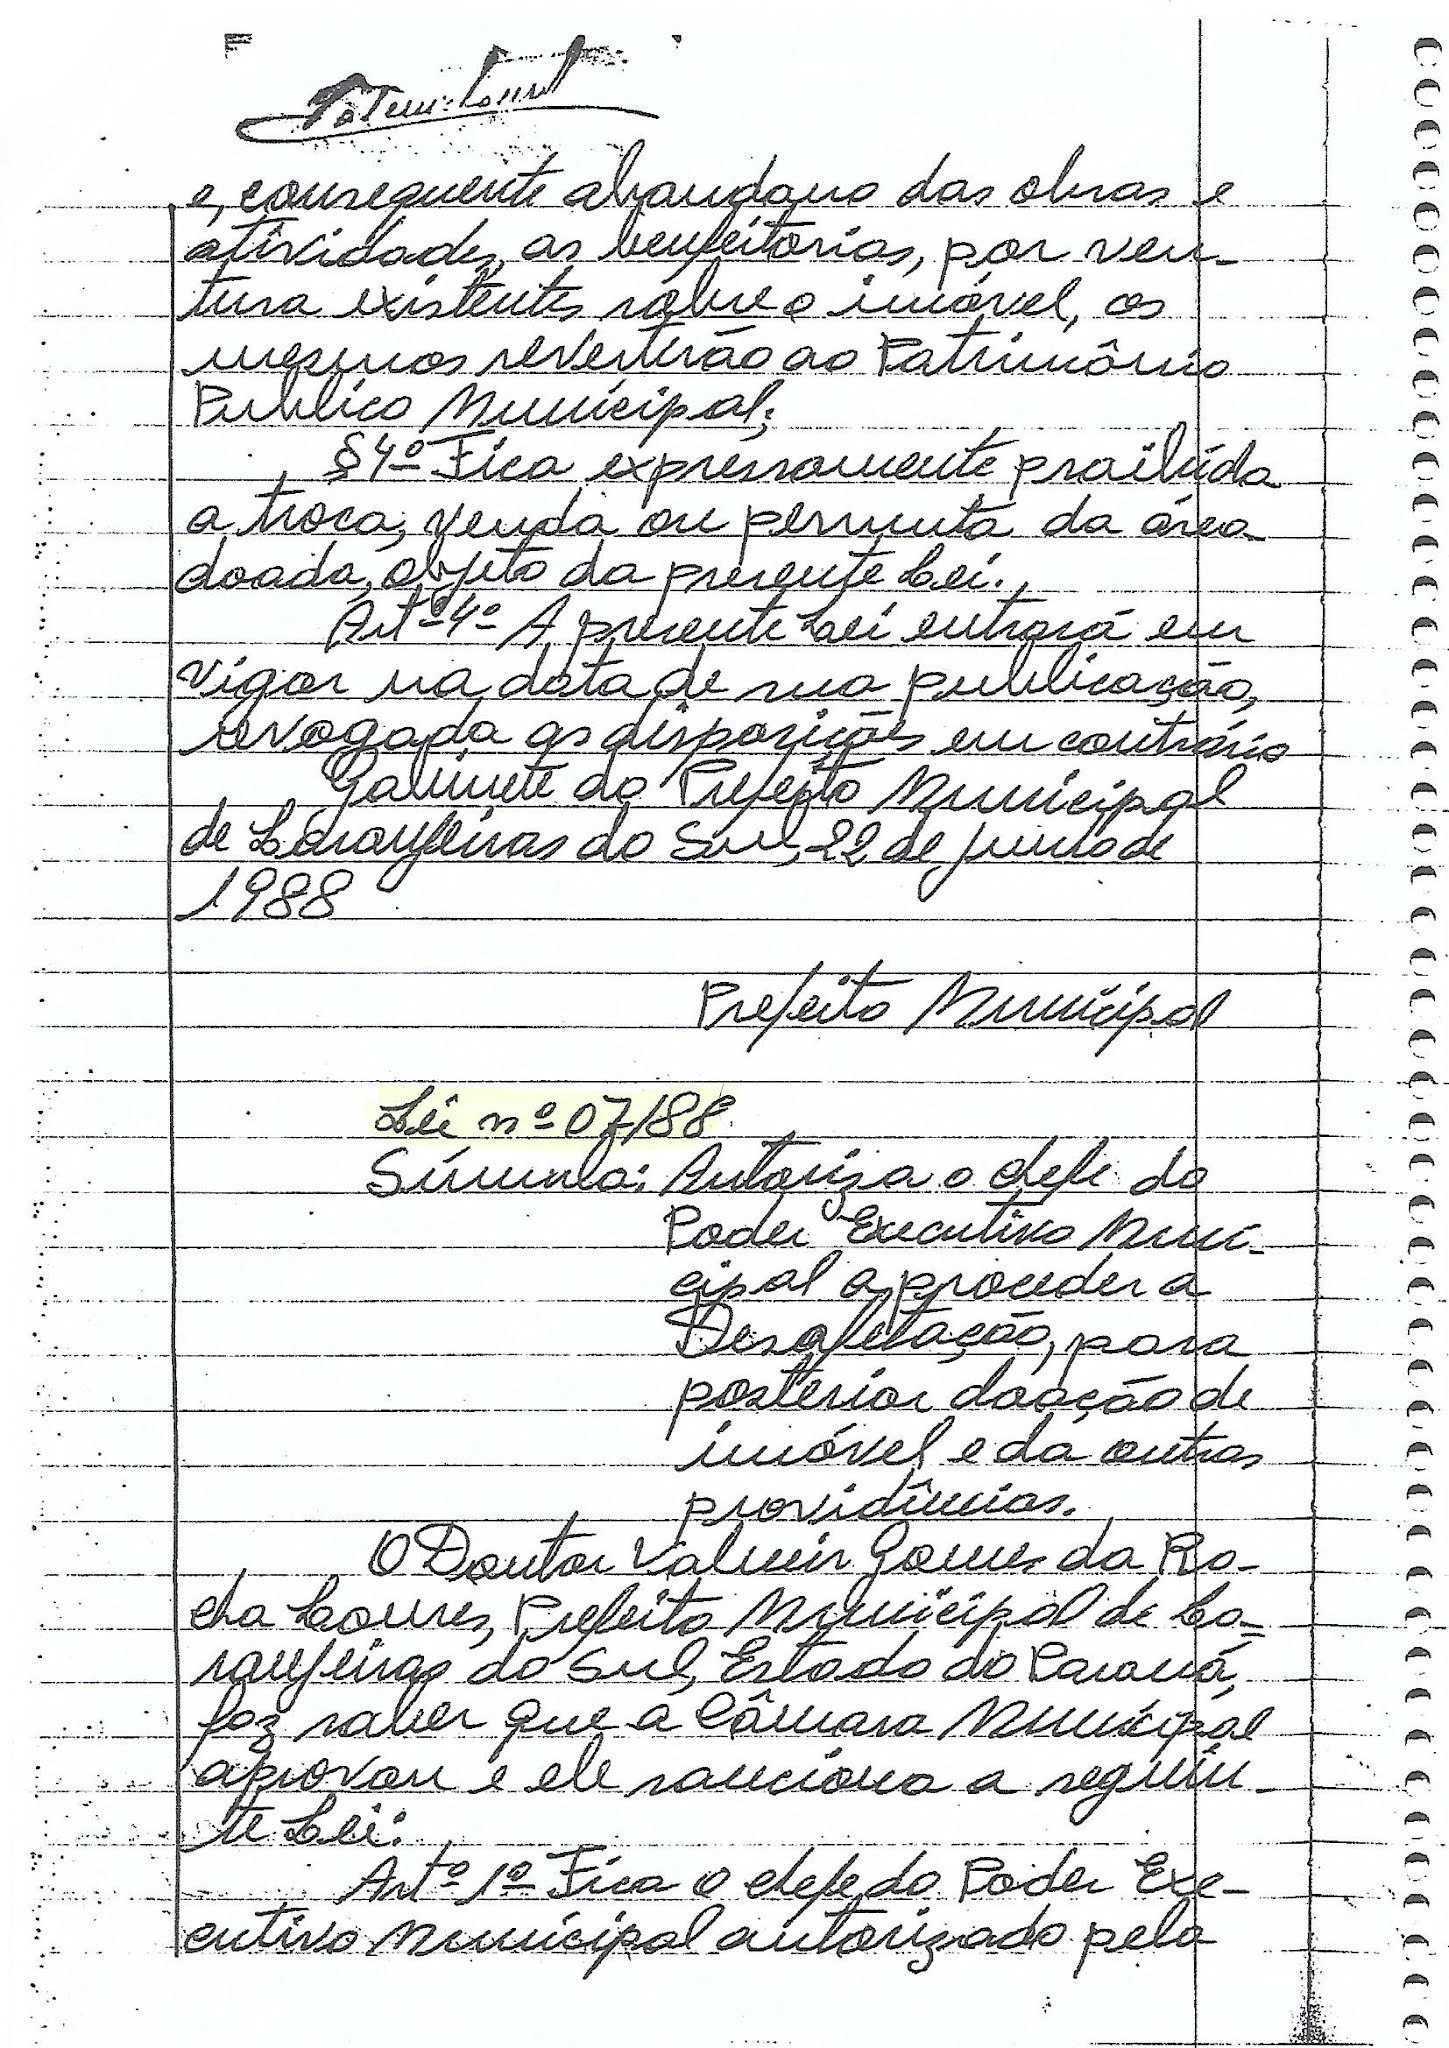 e, consequente abandono das obras e
atividades, as benfeitorias, por ven-
tura existentes sobre o imóvel, os
mesmos reverterão ao Patrimônio
Publico Municipal;
§4º Fica expressamente proibida
a troca, venda ou permuta da área
doada, objeto da presente Lei.
Artº 4º A presente Lei entrará em
vigor na data de sua publicação,
revogada as disposições em contrário
Gabinete do Prefeito Municipal
de Laranjeiras do Sul, 22 de Junho de
1988
Prefeito Municipal
Lei nº 07/88.
Súmula: Autoriza o chefe do
Poder Executivo Muni-
cipal a proceder a
Desafetação, para
posterior doação de
imóvel e da outras
providências.
O Doutor Valmir Gomes da Ro-
cha Loures, Prefeito Municipal de La-
ranjeiras do Sul, Estado do Paraná,
faz saber que a Câmara Municipal
aprovou e ele sanciona a seguin-
te Lei:
Artº 1º Fica o chefe do Poder Exe-
cutivo Municipal autorizado pela